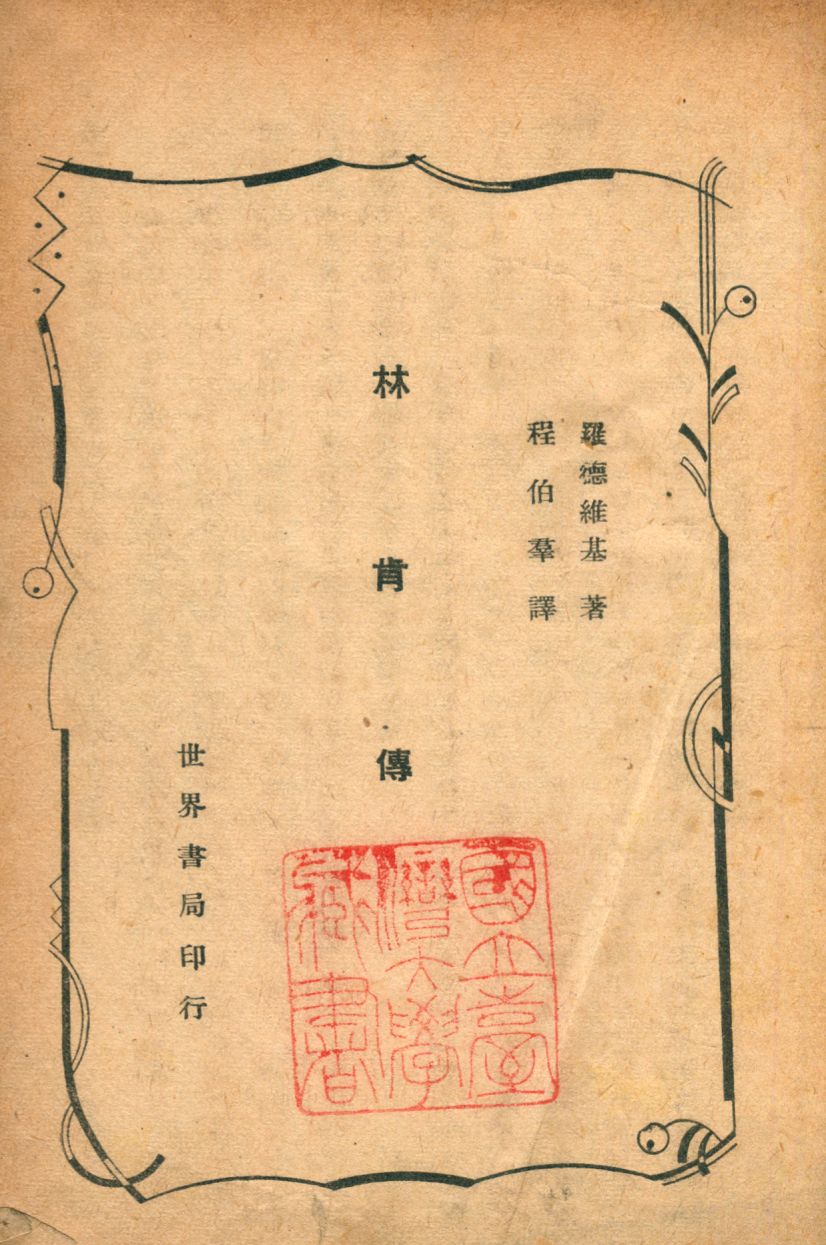 羅德維基著
程伯羣譯
林肯傳
世界書局印行
國立臺
灣大學
藏書